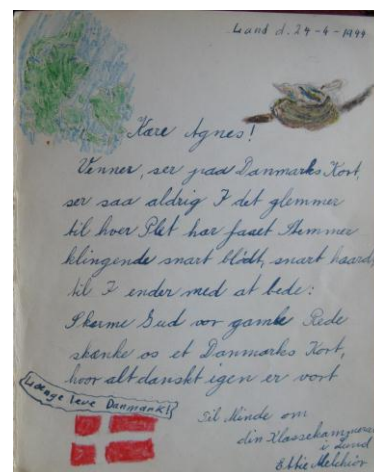 Lund d. 24-4-1944
Kære Agnes!
Venner, ser paa Danmarks Kort,
ser saa aldrig I det glemmer
til hver Plet har faaet Stemmer
klingende snart blidt, snart haard,
til I ender med at bede:
Skerme Gud vor gamle Rede
skænke os et Danmarks Kort,
hvor alt danskt igen er vort
Længe leve Danmark!
Til Minde om
din Klassekammerat
i Lund
Melchior